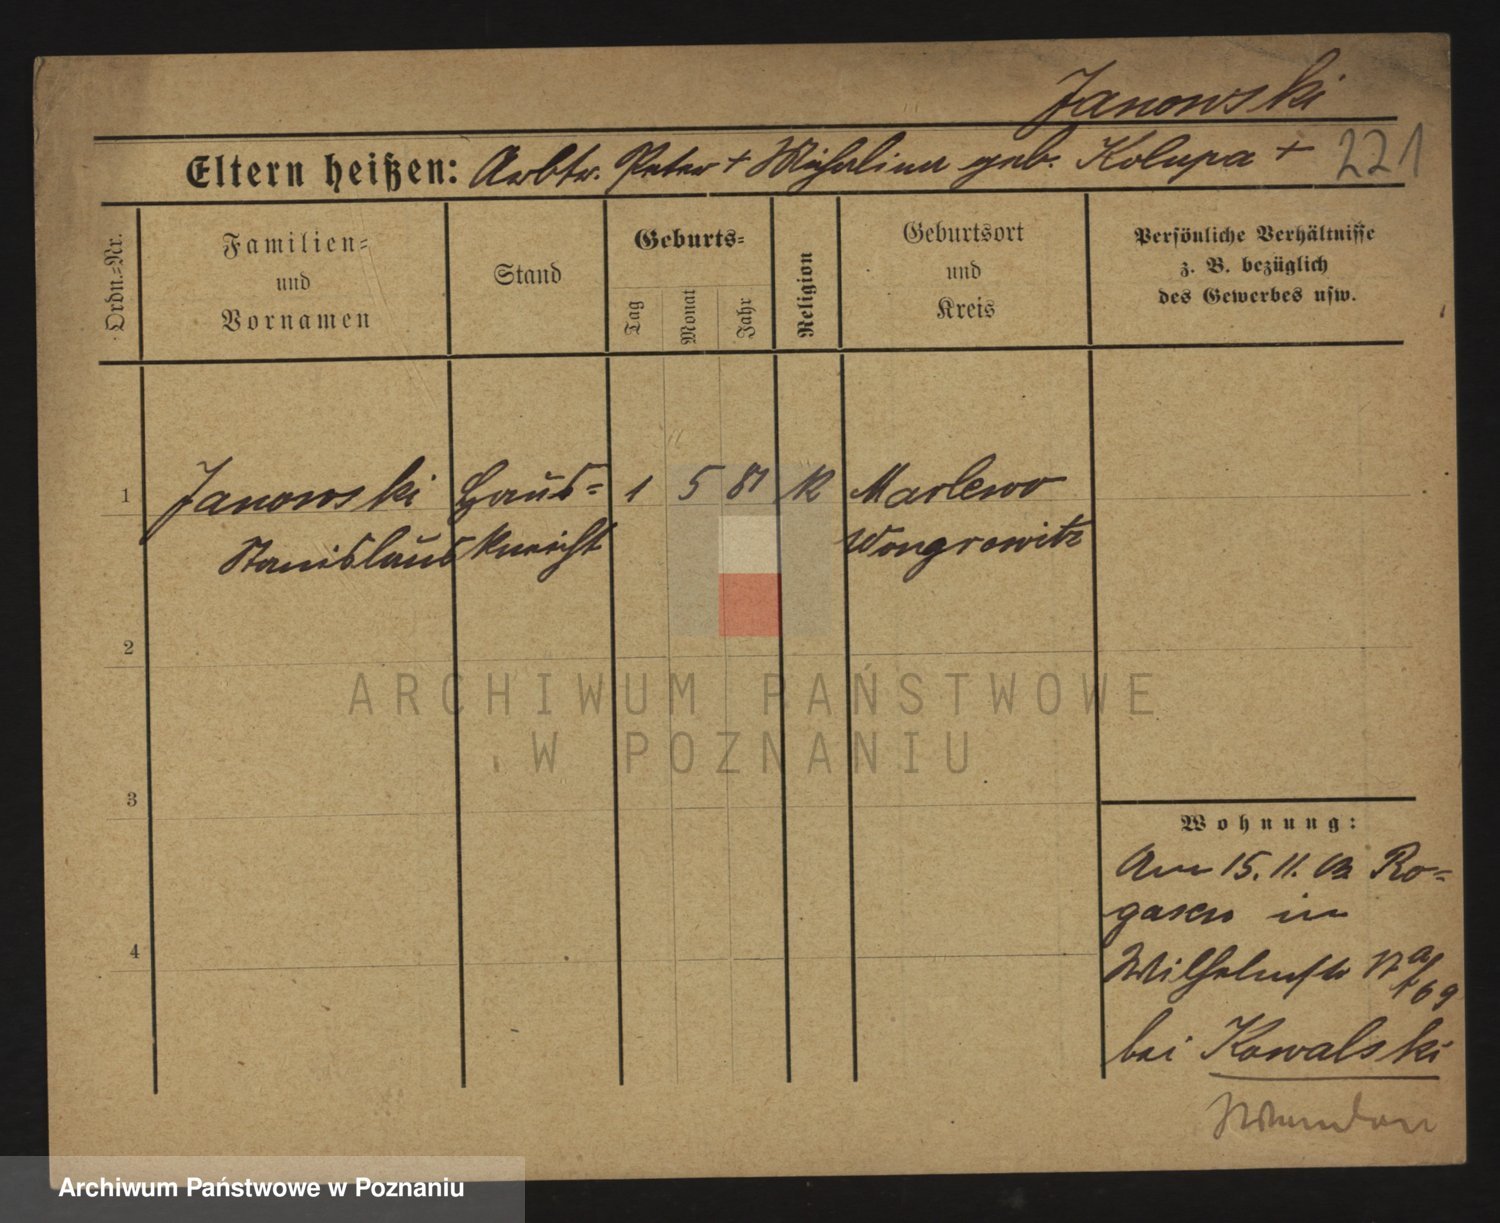 Janowski
Eltern heißen: Arbtr. Peter + Michalina geb. Kolupa +
221
Ordn.=Nr.
Familien=
und
Vornamen
Stand
Geburts=
Tag
Monat
Jahr
Religion
Geburtsort
und
Kreis
Persönliche Verhältnisse
z. B. bezüglich
des Gewerbes usw.
1 Janowski Haus= 1 5 81 K Marlewo
Stanislaus knecht Wongrowitz
2
3
4
Wohnung:
Am 15. 11. 03 Ro=
gasen in
Wilhelmstr
bei Kowalski
ARCHIWUM PAŃSTWOWE
W POZNANIU
Archiwum Państwowe w Poznaniu